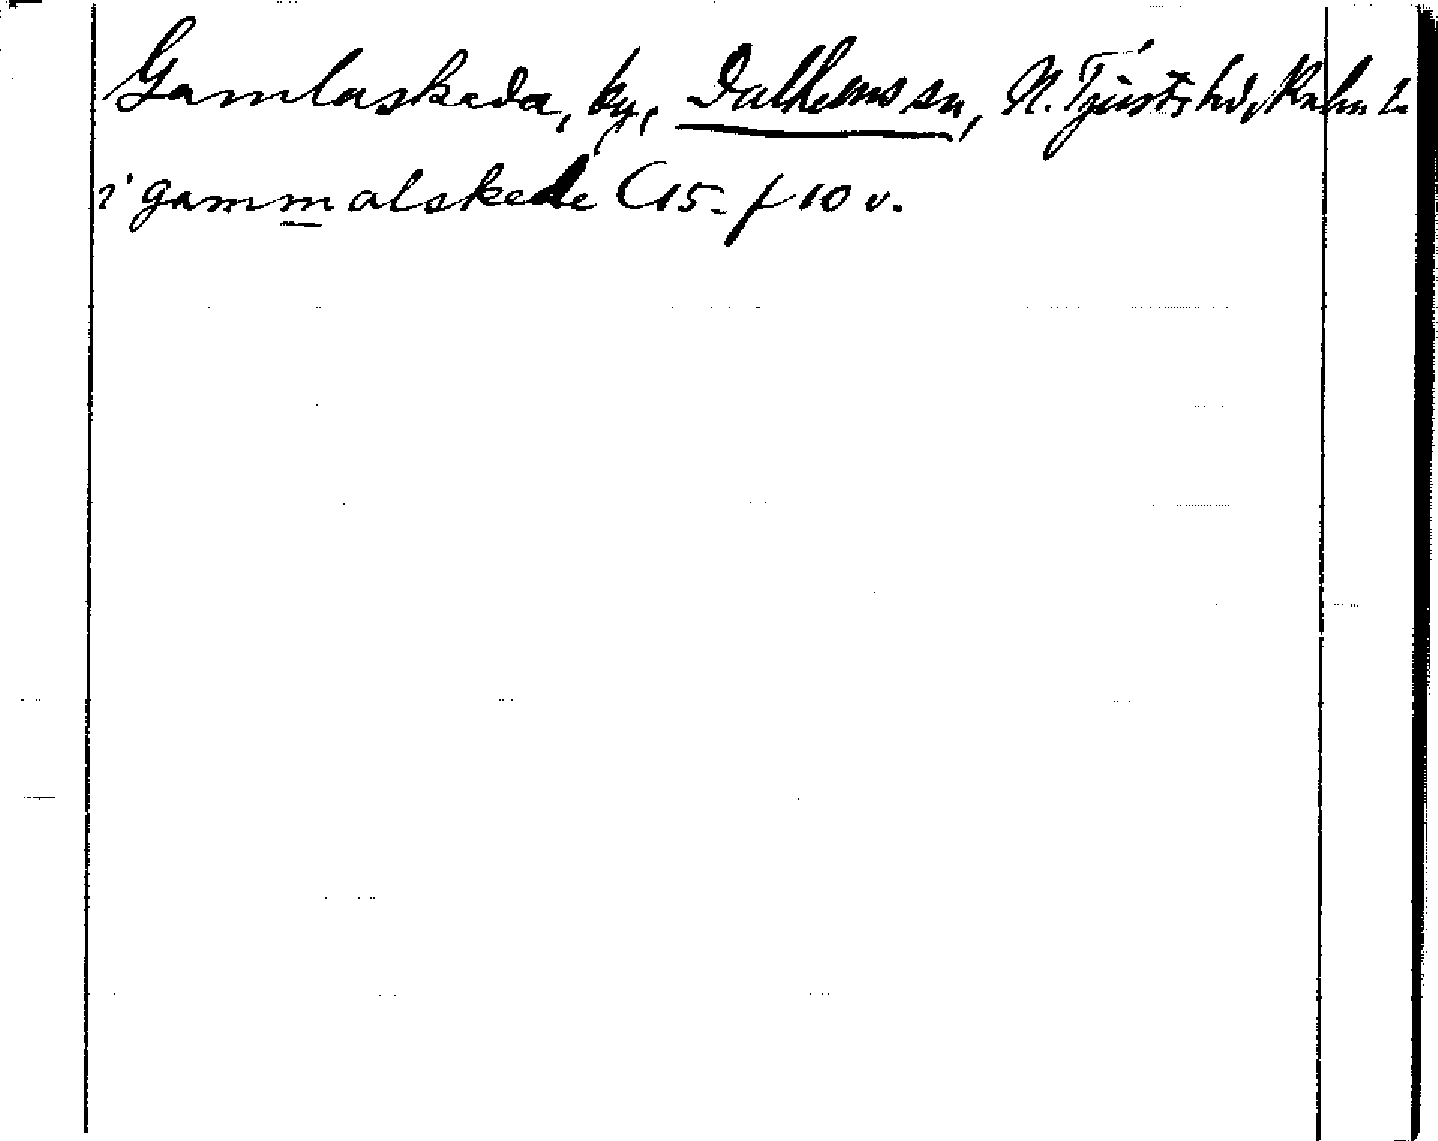 Gamlaskeda, by, Dalhems sn, N. Tjusts hd, Kalm L.
i gammalskede C15- f 10 v.